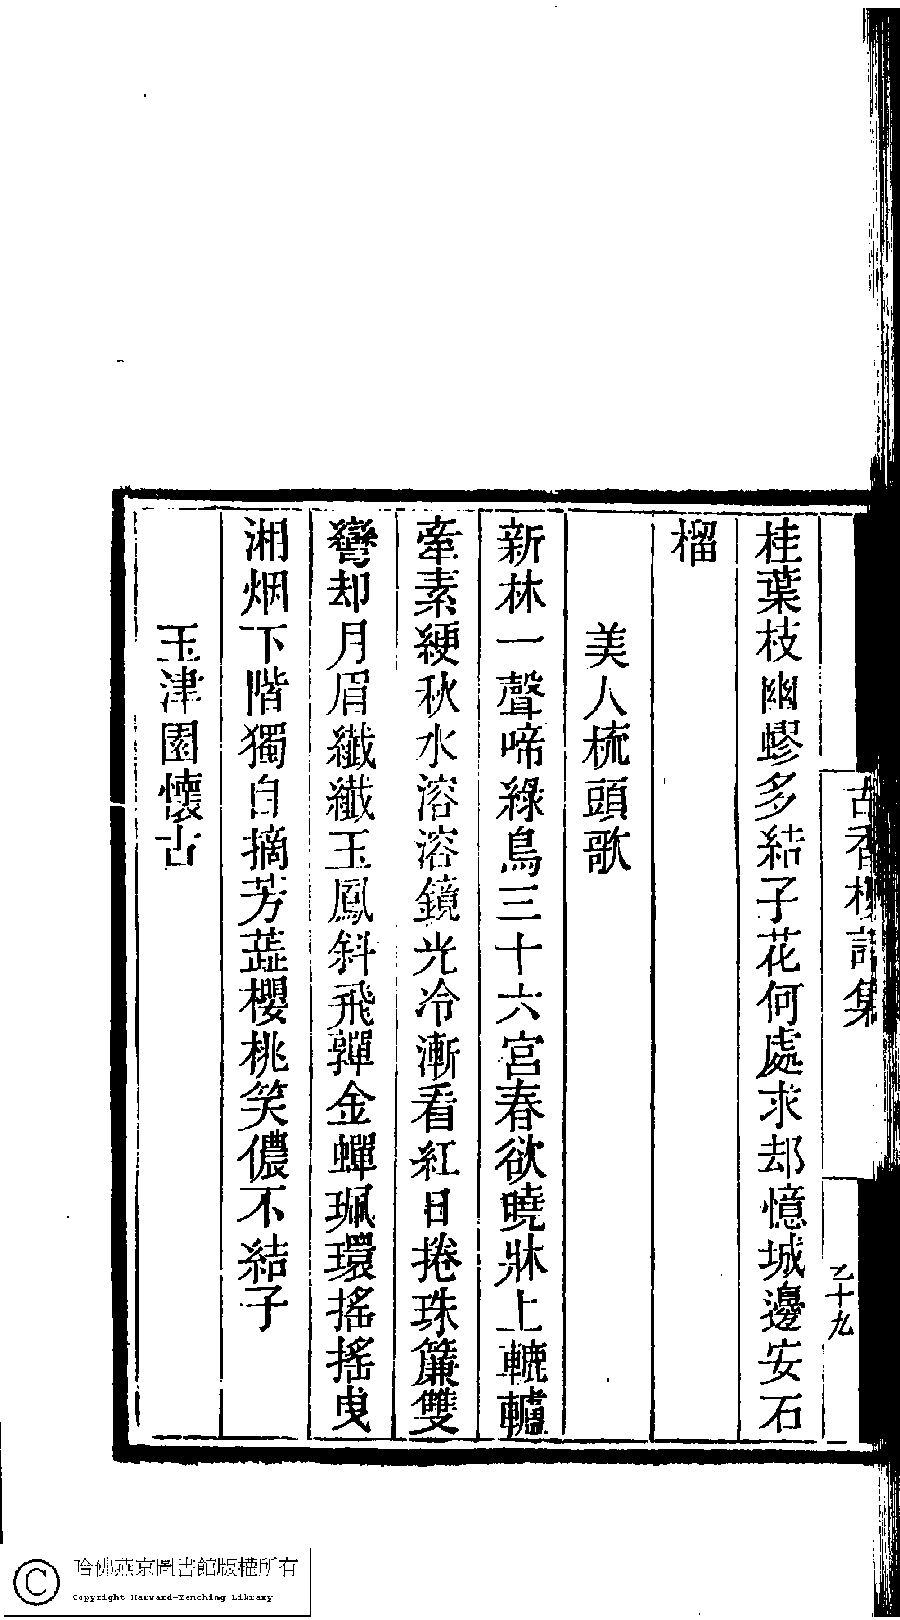 古香樓詩集
乙十九
桂葉枝幽蟉多結子花何處求却憶城邊安石
榴
美人梳頭歌
新林一聲啼綠鳥三十六宮春欲曉牀上轆轤
牽素綆秋水溶溶鏡光冷漸看紅日捲珠簾雙
彎却月眉纖纖玉鳳斜飛嚲金蟬珮環搖搖曳
湘烟下階獨自摘芳蕋櫻桃笑儂不結子
玉津園懷古
哈佛燕京圖書館版權所有
Copyright Harvard-Yenching Library